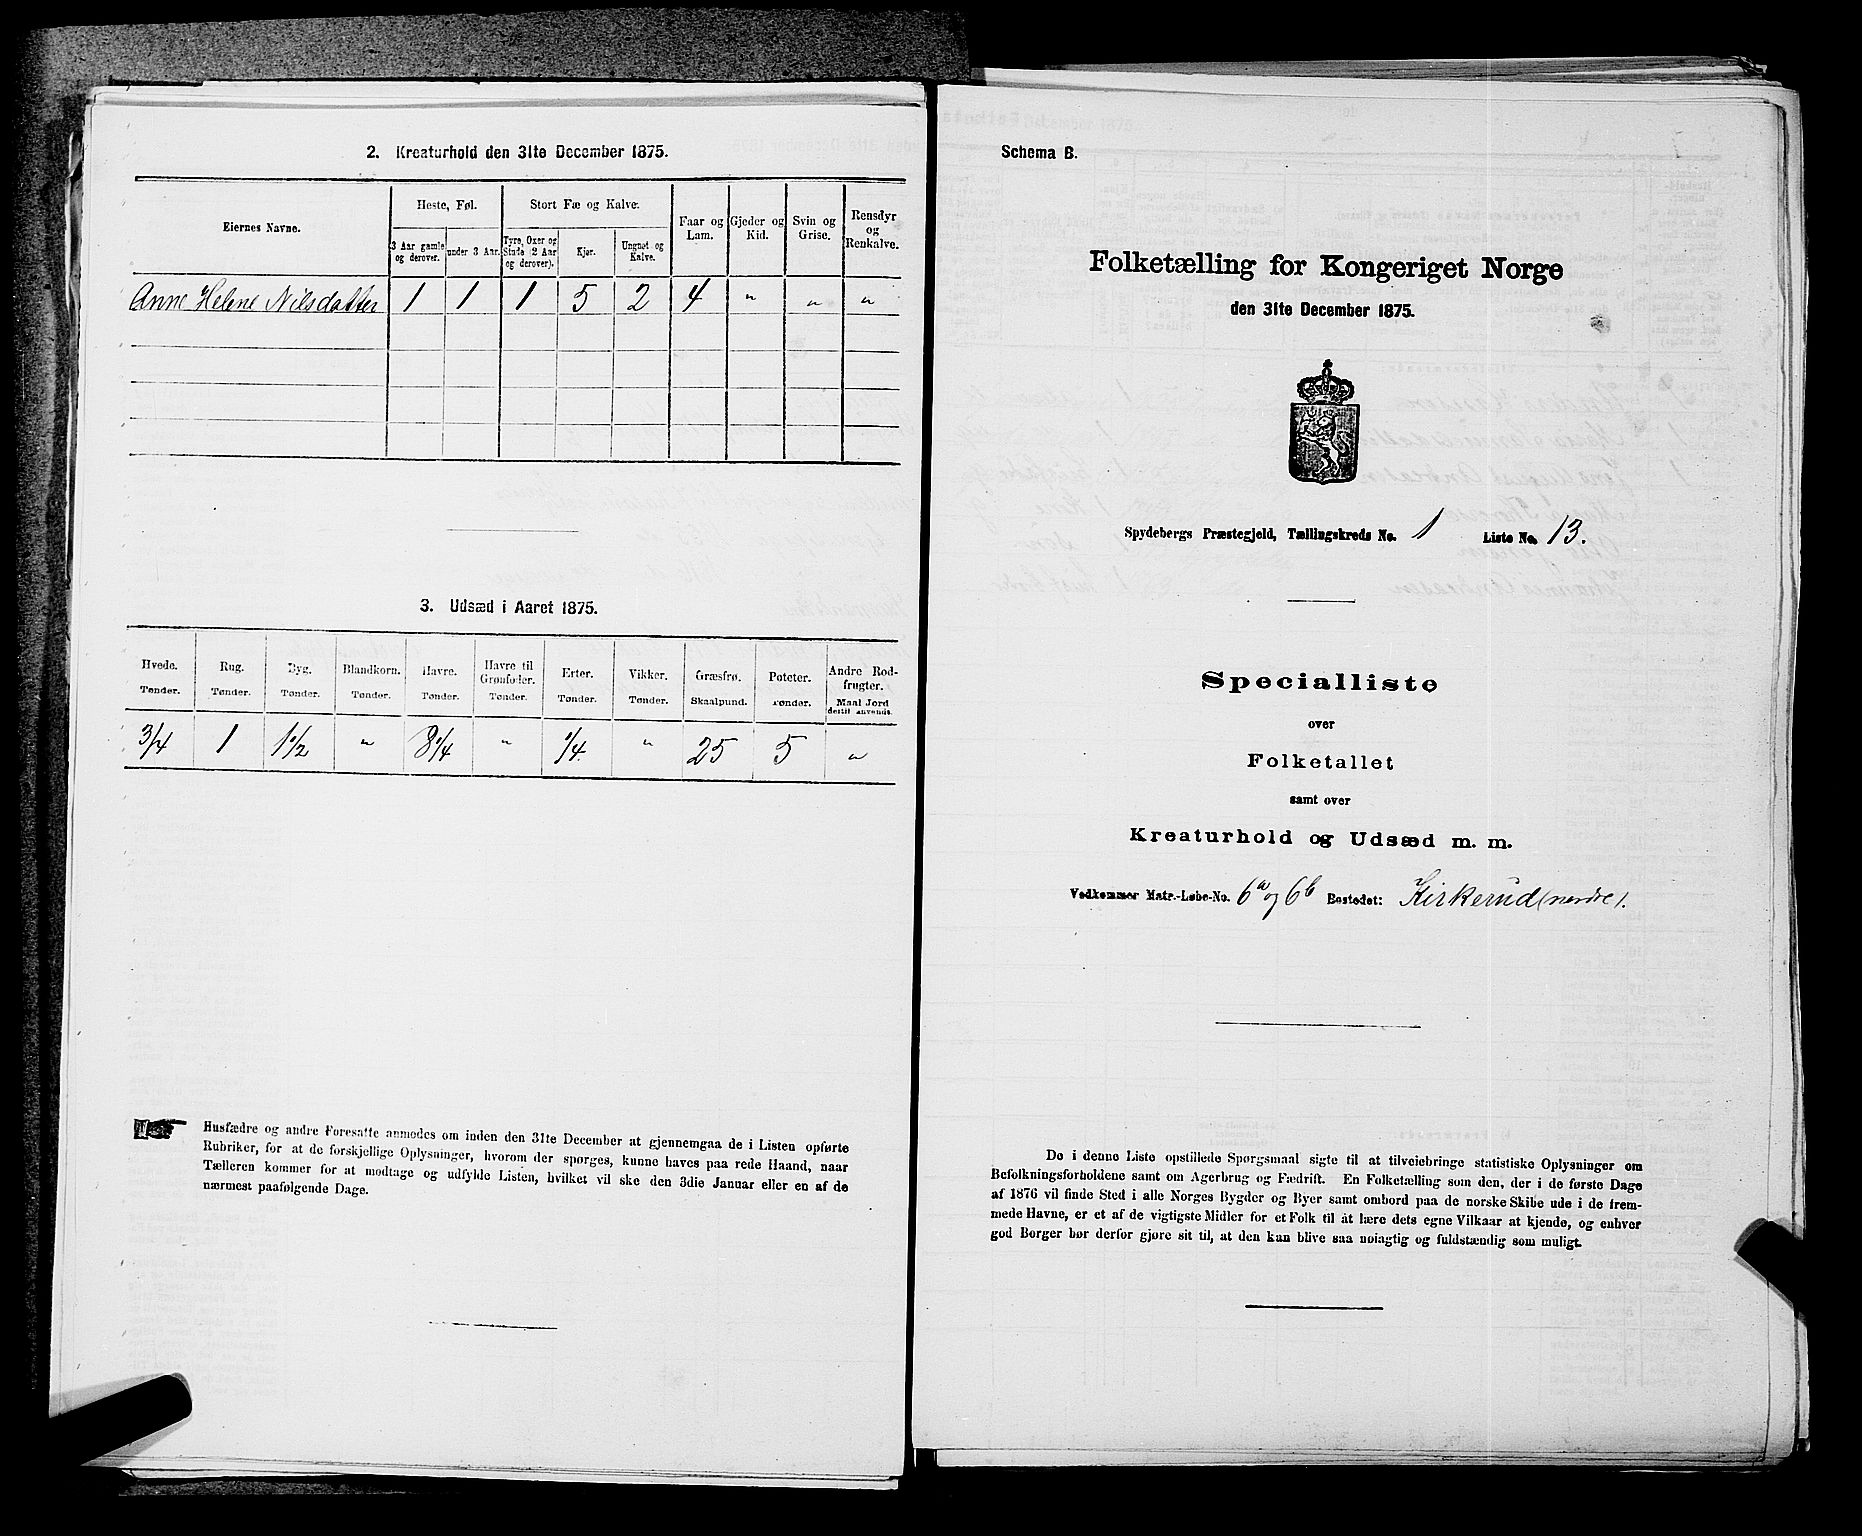 2. Kreaturhold den 31te December 1875.
Eiernes Navne.
Heste, Føl.
Stort Fæ og Kalve.
Faar og Lam.
Gjeder og Kid.
Svin og Grise.
Rensdyr og Renkalve.
3 Aar gamle og derover.
under 3 Aar.
Tyre, Oxer og Stude (2 Aar og derover).
Kjør.
Ungnøt og Kalve.
Anne Helene Nilsdatter 1 1 1 5 2 4 " " "
3. Udsæd i Aaret 1875.
Hvede. Rug. Byg. Blandkorn. Havre. Havre til Grønfoder. Erter. Vikker. Græsfrø. Poteter. Andre Rodfrugter.
Tønder. Tønder. Tønder. Tønder. Tønder. Tønder. Tønder. Tønder. Skaalpund. Tønder. Maal Jord dertil anvendt.
3/4 1 1 1/2 " 8 1/4 " 1/4 " 25 5 "
Husfædre og andre Foresatte anmodes om inden den 31te December at gjennemgaa de i Listen opførte
Rubriker, for at de forskjellige Oplysninger, hvorom der spørges, kunne haves paa rede Haand, naar
Tælleren kommer for at modtage og udfylde Listen, hvilket vil ske den 3die Januar eller en af de
nærmest paafølgende Dage.
Schema B.
Folketælling for Kongeriget Norge
den 31te December 1875.
Spydebergs Præstegjeld, Tællingskreds No. 1 Liste No. 13.
Specialliste
over
Folketallet
samt over
Kreaturhold og Udsæd m. m.
Vedkommer Matr.-Løbe-No. 6a og 6b Bostedet: Kirkerud (nordre).
De i denne Liste opstillede Spørgsmaal sigte til at tilveiebringe statistiske Oplysninger om
Befolkningsforholdene samt om Agerbrug og Fædrift. En Folketælling som den, der i de første Dage
af 1876 vil finde Sted i alle Norges Bygder og Byer samt ombord paa de norske Skibe ude i de frem-
mede Havne, er et af de vigtigste Midler for et Folk til at lære dets egne Vilkaar at kjende, og enhver
god Borger bør derfor gjøre sit til, at den kan blive saa nøiagtig og fuldstændig som muligt.